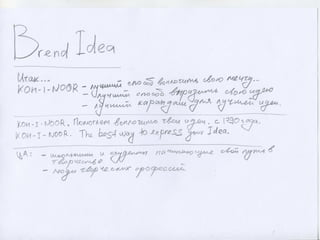 Brend Idea
Итак...
KOH-I-NOOR - лучший способ воплотить свою мечту...
- лучший способ выразить свою идею
- лучший карандаш для лучшей идеи.
KOH-I-NOOR. Помогаем воплощать твои идеи. с 1790 года.
KOH-I-NOOR. The best way to express your Idea.
ЦА: - школьники и студенты начинающие свой путь в
творчестве
- люди творческих профессий